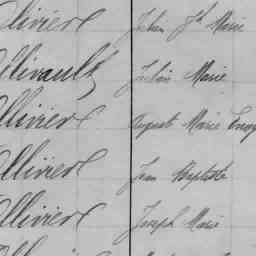 Ollivier Julien Jh Marie
Ollivault Julien Marie
Ollivier August Marie
Ollivier Jean Baptiste
Ollivier Joseph Marie